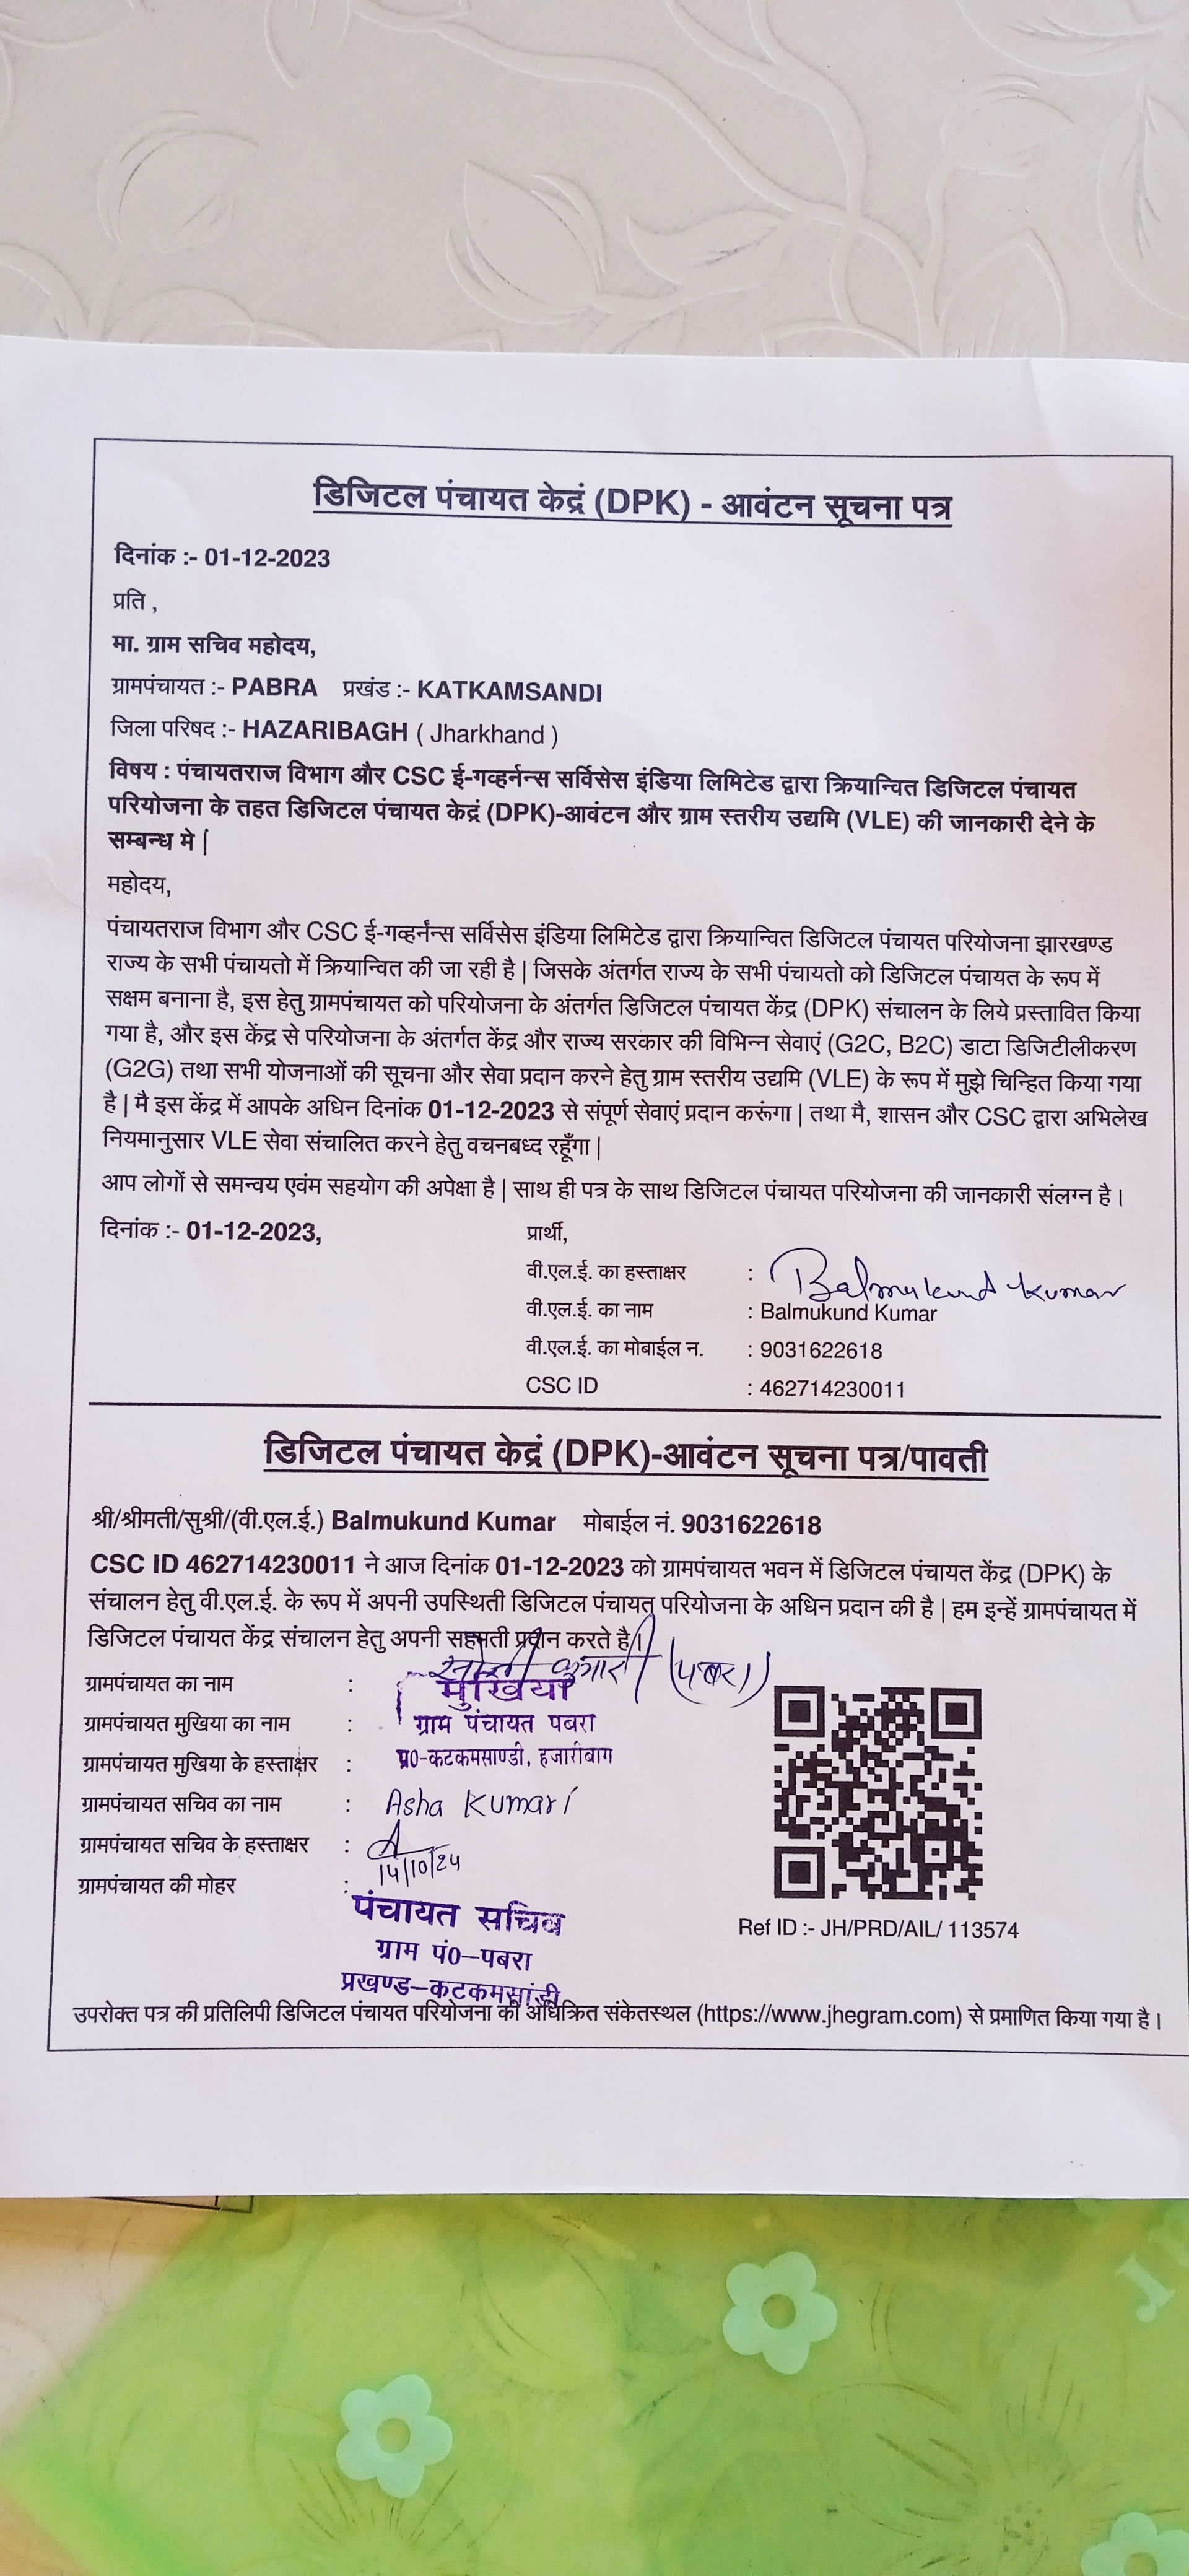 डिजिटल पंचायत केद्रं (DPK) - आवंटन सूचना पत्र
दिनांक :- 01-12-2023
प्रति ,
मा. ग्राम सचिव महोदय,
ग्रामपंचायत :- PABRA प्रखंड :- KATKAMSANDI
जिला परिषद :- HAZARIBAGH ( Jharkhand )
विषय : पंचायतराज विभाग और CSC ई-गव्हर्नन्स सर्विसेस इंडिया लिमिटेड द्वारा क्रियान्वित डिजिटल पंचायत
परियोजना के तहत डिजिटल पंचायत केद्रं (DPK)-आवंटन और ग्राम स्तरीय उद्यमि (VLE) की जानकारी देने के
सम्बन्ध मे |
महोदय,
पंचायतराज विभाग और CSC ई-गव्हर्नन्स सर्विसेस इंडिया लिमिटेड द्वारा क्रियान्वित डिजिटल पंचायत परियोजना झारखण्ड
राज्य के सभी पंचायतो में क्रियान्वित की जा रही है | जिसके अंतर्गत राज्य के सभी पंचायतो को डिजिटल पंचायत के रूप में
सक्षम बनाना है, इस हेतु ग्रामपंचायत को परियोजना के अंतर्गत डिजिटल पंचायत केंद्र (DPK) संचालन के लिये प्रस्तावित किया
गया है, और इस केंद्र से परियोजना के अंतर्गत केंद्र और राज्य सरकार की विभिन्न सेवाएं (G2C, B2C) डाटा डिजिटीलीकरण
(G2G) तथा सभी योजनाओं की सूचना और सेवा प्रदान करने हेतु ग्राम स्तरीय उद्यमि (VLE) के रूप में मुझे चिन्हित किया गया
है | मै इस केंद्र में आपके अधिन दिनांक 01-12-2023 से संपूर्ण सेवाएं प्रदान करूंगा | तथा मै, शासन और CSC द्वारा अभिलेख
नियमानुसार VLE सेवा संचालित करने हेतु वचनबध्द रहूँगा |
आप लोगों से समन्वय एवंम सहयोग की अपेक्षा है | साथ ही पत्र के साथ डिजिटल पंचायत परियोजना की जानकारी संलग्न है।
दिनांक :- 01-12-2023,
प्रार्थी,
वी.एल.ई. का हस्ताक्षर : Balmukund Kumar
वी.एल.ई. का नाम : Balmukund Kumar
वी.एल.ई. का मोबाईल न. : 9031622618
CSC ID : 462714230011
डिजिटल पंचायत केद्रं (DPK)-आवंटन सूचना पत्र/पावती
श्री/श्रीमती/सुश्री/(वी.एल.ई.) Balmukund Kumar मोबाईल नं. 9031622618
CSC ID 462714230011 ने आज दिनांक 01-12-2023 को ग्रामपंचायत भवन में डिजिटल पंचायत केंद्र (DPK) के
संचालन हेतु वी.एल.ई. के रूप में अपनी उपस्थिती डिजिटल पंचायत परियोजना के अधिन प्रदान की है | हम इन्हें ग्रामपंचायत में
डिजिटल पंचायत केंद्र संचालन हेतु अपनी सहमती प्रदान करते है।
कुमारी (पबरा)
ग्रामपंचायत का नाम : मुखिया
ग्रामपंचायत मुखिया का नाम : ग्राम पंचायत पबरा
ग्रामपंचायत मुखिया के हस्ताक्षर : प्र0-कटकमसाण्डी, हजारीबाग
ग्रामपंचायत सचिव का नाम : Asha Kumari
ग्रामपंचायत सचिव के हस्ताक्षर : 14/10/24
ग्रामपंचायत की मोहर :
पंचायत सचिव
ग्राम पं0–पबरा
प्रखण्ड–कटकमसांडी
Ref ID :- JH/PRD/AIL/ 113574
उपरोक्त पत्र की प्रतिलिपी डिजिटल पंचायत परियोजना की अधिक्रित संकेतस्थल (https://www.jhegram.com) से प्रमाणित किया गया है।